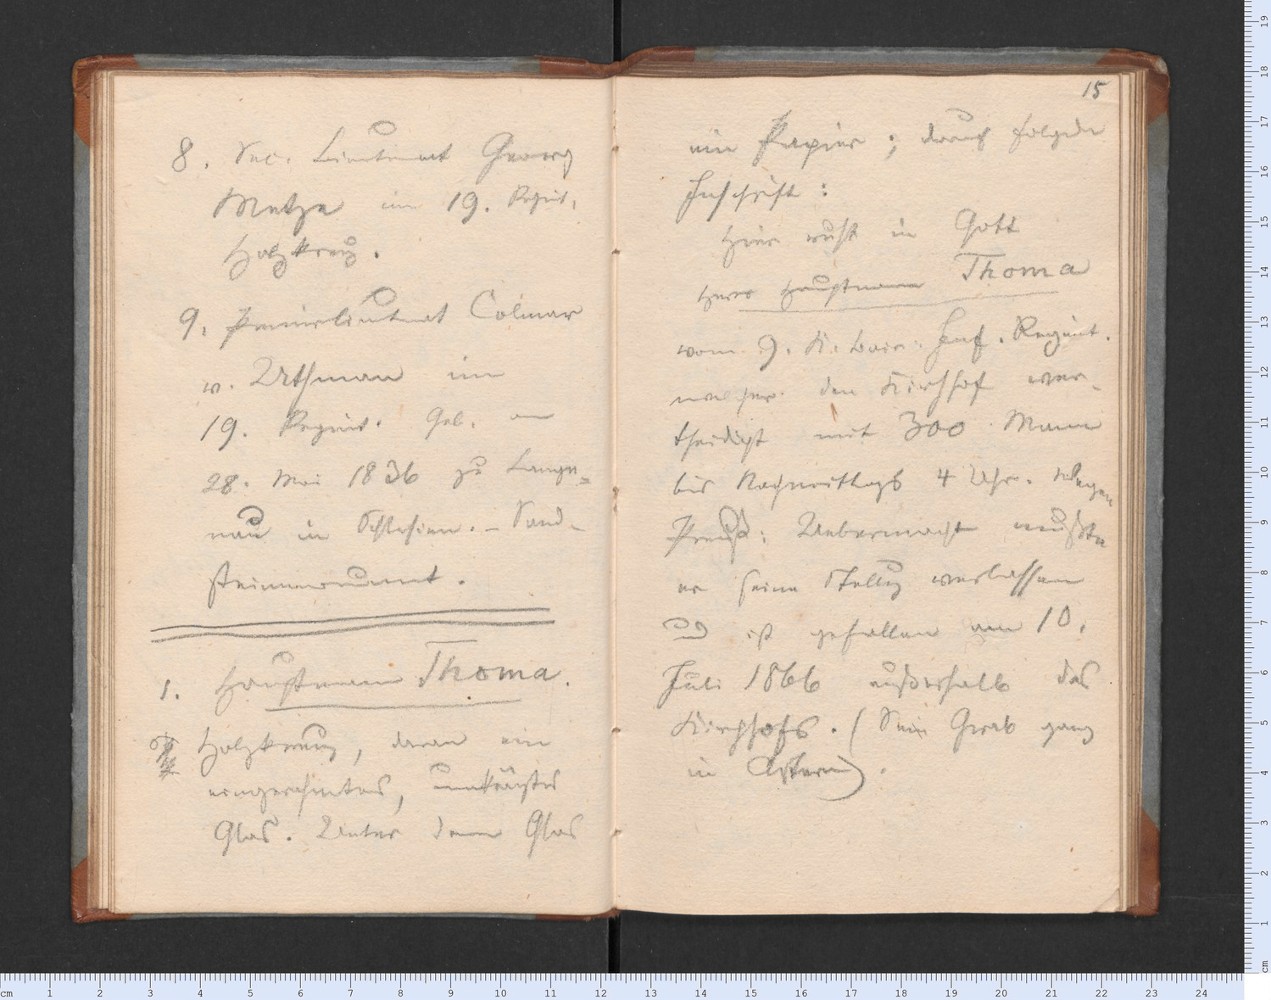 8. Sec. Lieutenant Georg
Metze im 19. Regint.
Holzkreuz.
9. Premierlieutenant Colmar
v. Uthman im
19. Regint. Geb. am
28. Mai 1836 zu Lange=
nau in Schlesien. – Sand-
steinmonument.
1. Hauptmann Thoma.
Holzkreuz, daran ein
eingerahmtes, umkränztes
Glas. Unter dem Glas
15
ein Papier; darauf folgende
Inschrift:
Hier ruht in Gott
Herr Hauptmann Thoma
vom 9. K. bair. Inf. Regint.
welcher den Kirchhof ver-
theidigt mit 300 Mann
bis Nachmittags 4 Uhr. Wegen
Preuß: Uebermacht mußte
er seine Stellg verlassen
und ist gefallen am 10.
Juli 1866 außerhalb des
Kirchhofs. (Sein Grab ganz
in Astern).